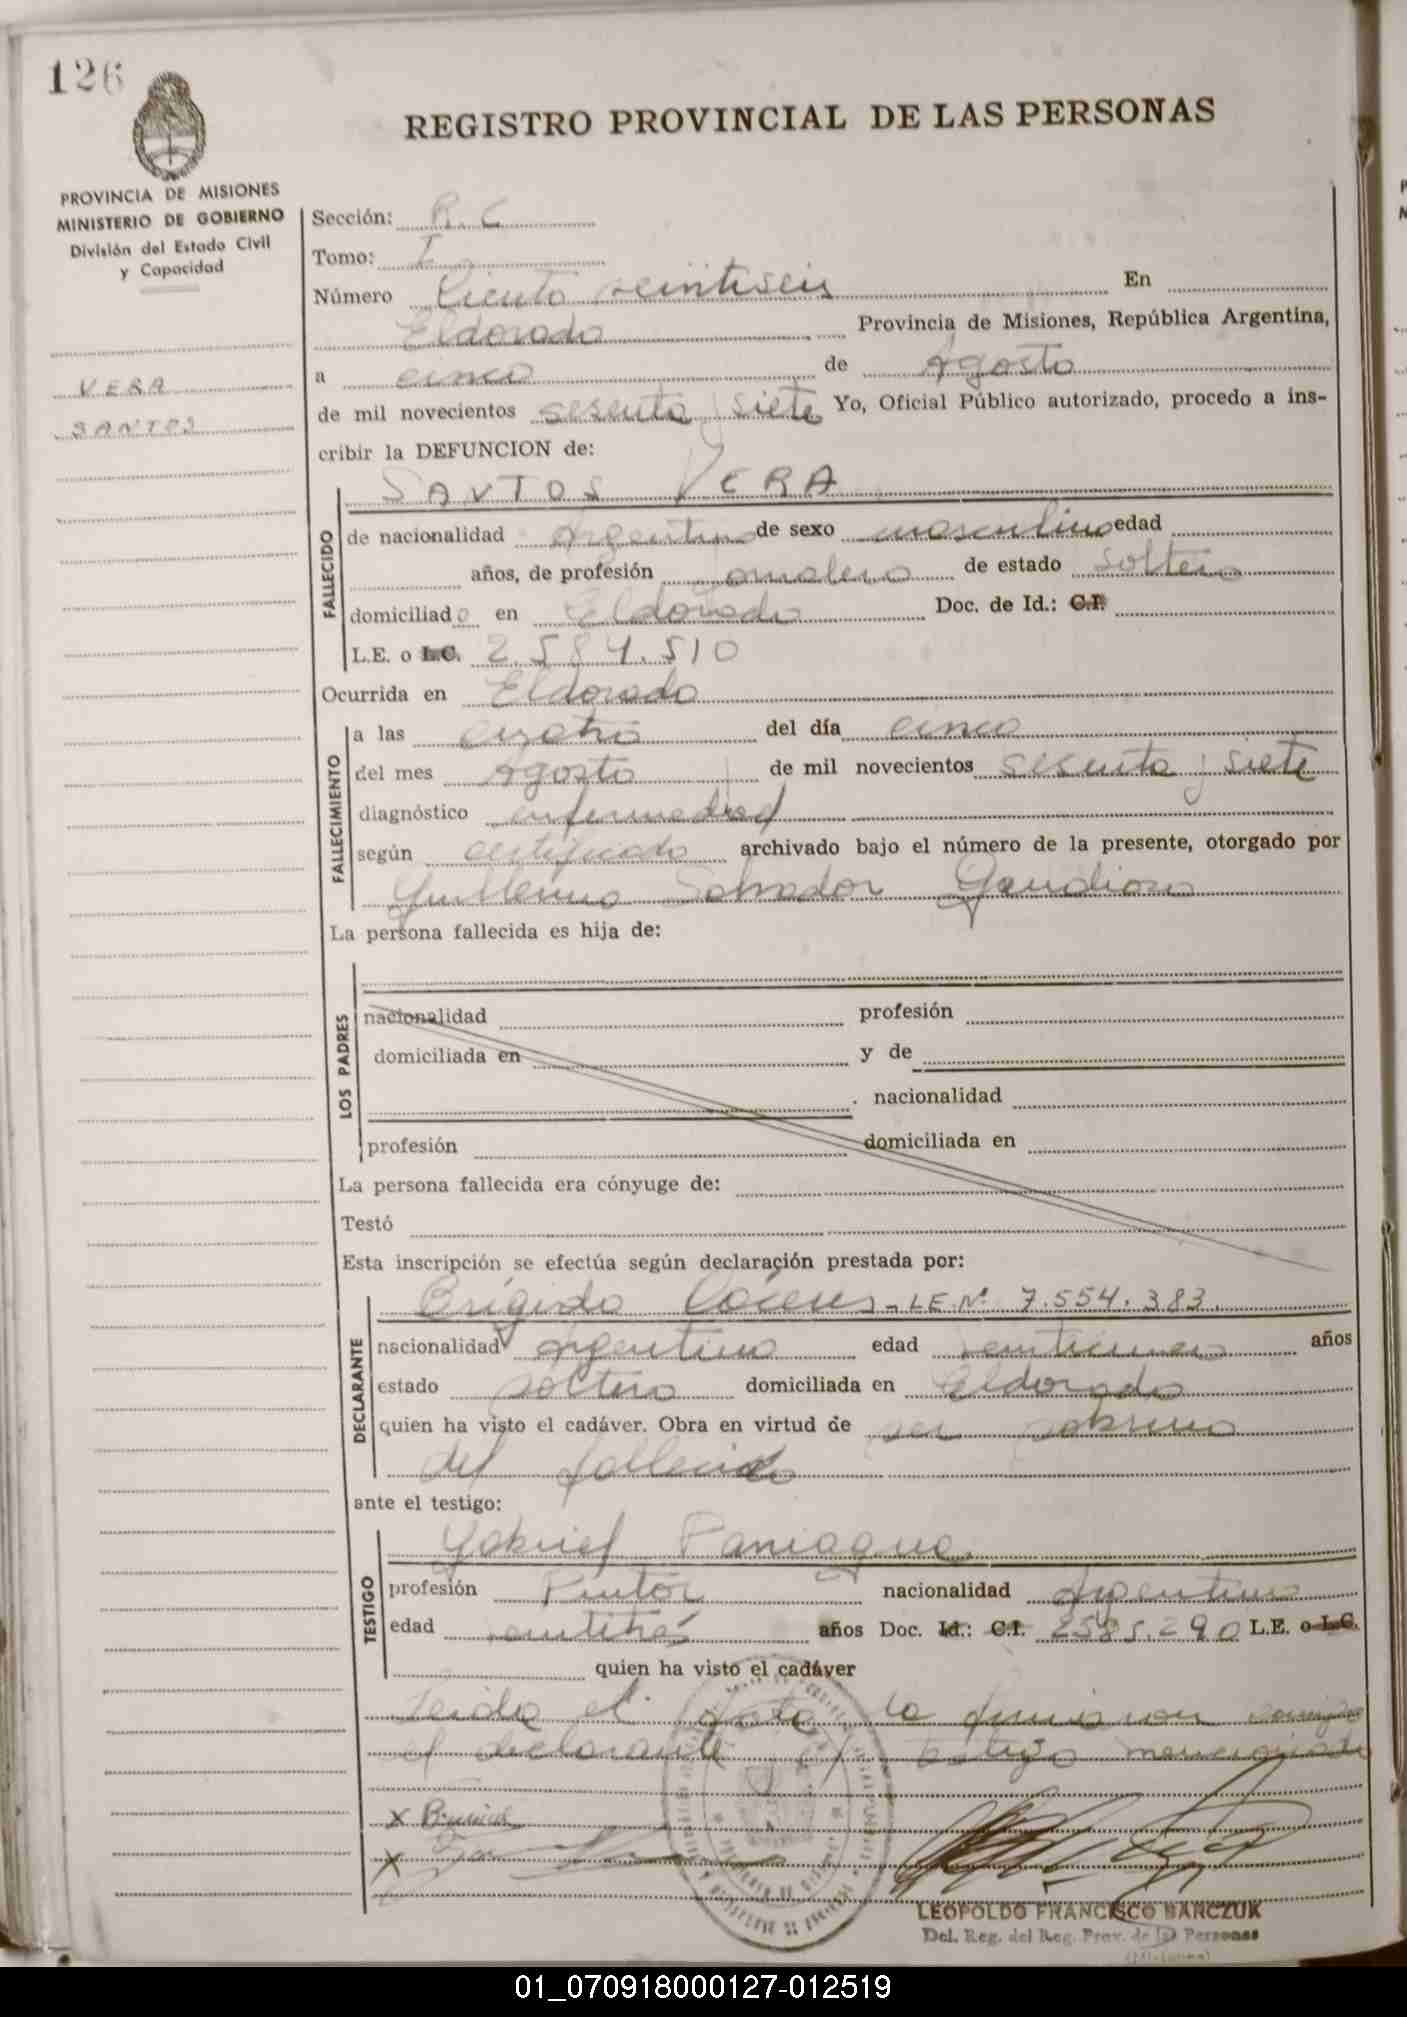 126
REGISTRO PROVINCIAL DE LAS PERSONAS
PROVINCIA DE MISIONES
MINISTERIO DE GOBIERNO
División del Estado Civil
y Capacidad
VERA
SANTOS
Sección: R. C
Tomo: I
Número Ciento veintiseis En
Eldorado Provincia de Misiones, República Argentina,
a cinco de Agosto
de mil novecientos sesenta y siete Yo, Oficial Público autorizado, procedo a ins-
cribir la DEFUNCION de:
SANTOS VERA
FALLECIDO
de nacionalidad Argentino de sexo masculino edad
años, de profesión Jornalero de estado soltero
domiciliado en Eldorado Doc. de Id.: C.I.
L.E. o L.C. 2.584.510
Ocurrida en Eldorado
FALLECIMIENTO
a las cuatro del día cinco
del mes Agosto de mil novecientos sesenta y siete
diagnóstico enfermedad
según certificado archivado bajo el número de la presente, otorgado por
Guillermo Salvador Gaudioso
La persona fallecida es hija de:
LOS PADRES
nacionalidad profesión
domiciliada en y de
nacionalidad
profesión domiciliada en
La persona fallecida era cónyuge de:
Testó
Esta inscripción se efectúa según declaración prestada por:
DECLARANTE
Brígido Cáceres - L.E. Nº 7.554.383.
nacionalidad Argentino edad años
estado soltero domiciliada en Eldorado
quien ha visto el cadáver. Obra en virtud de ser sobrino
del fallecido
ante el testigo:
TESTIGO
Gabriel Paniagua
profesión Pintor nacionalidad Argentino
edad años Doc. Id.: C.I. 2585.290 L.E. o L.C.
quien ha visto el cadáver
Leída el Acta la firman con
el declarante y testigo mencionado
x
x
LEOPOLDO FRANCISCO BANCZUK
Del. Reg. del Reg. Prov. de las Personas
(Misiones)
01_070918000127-012519